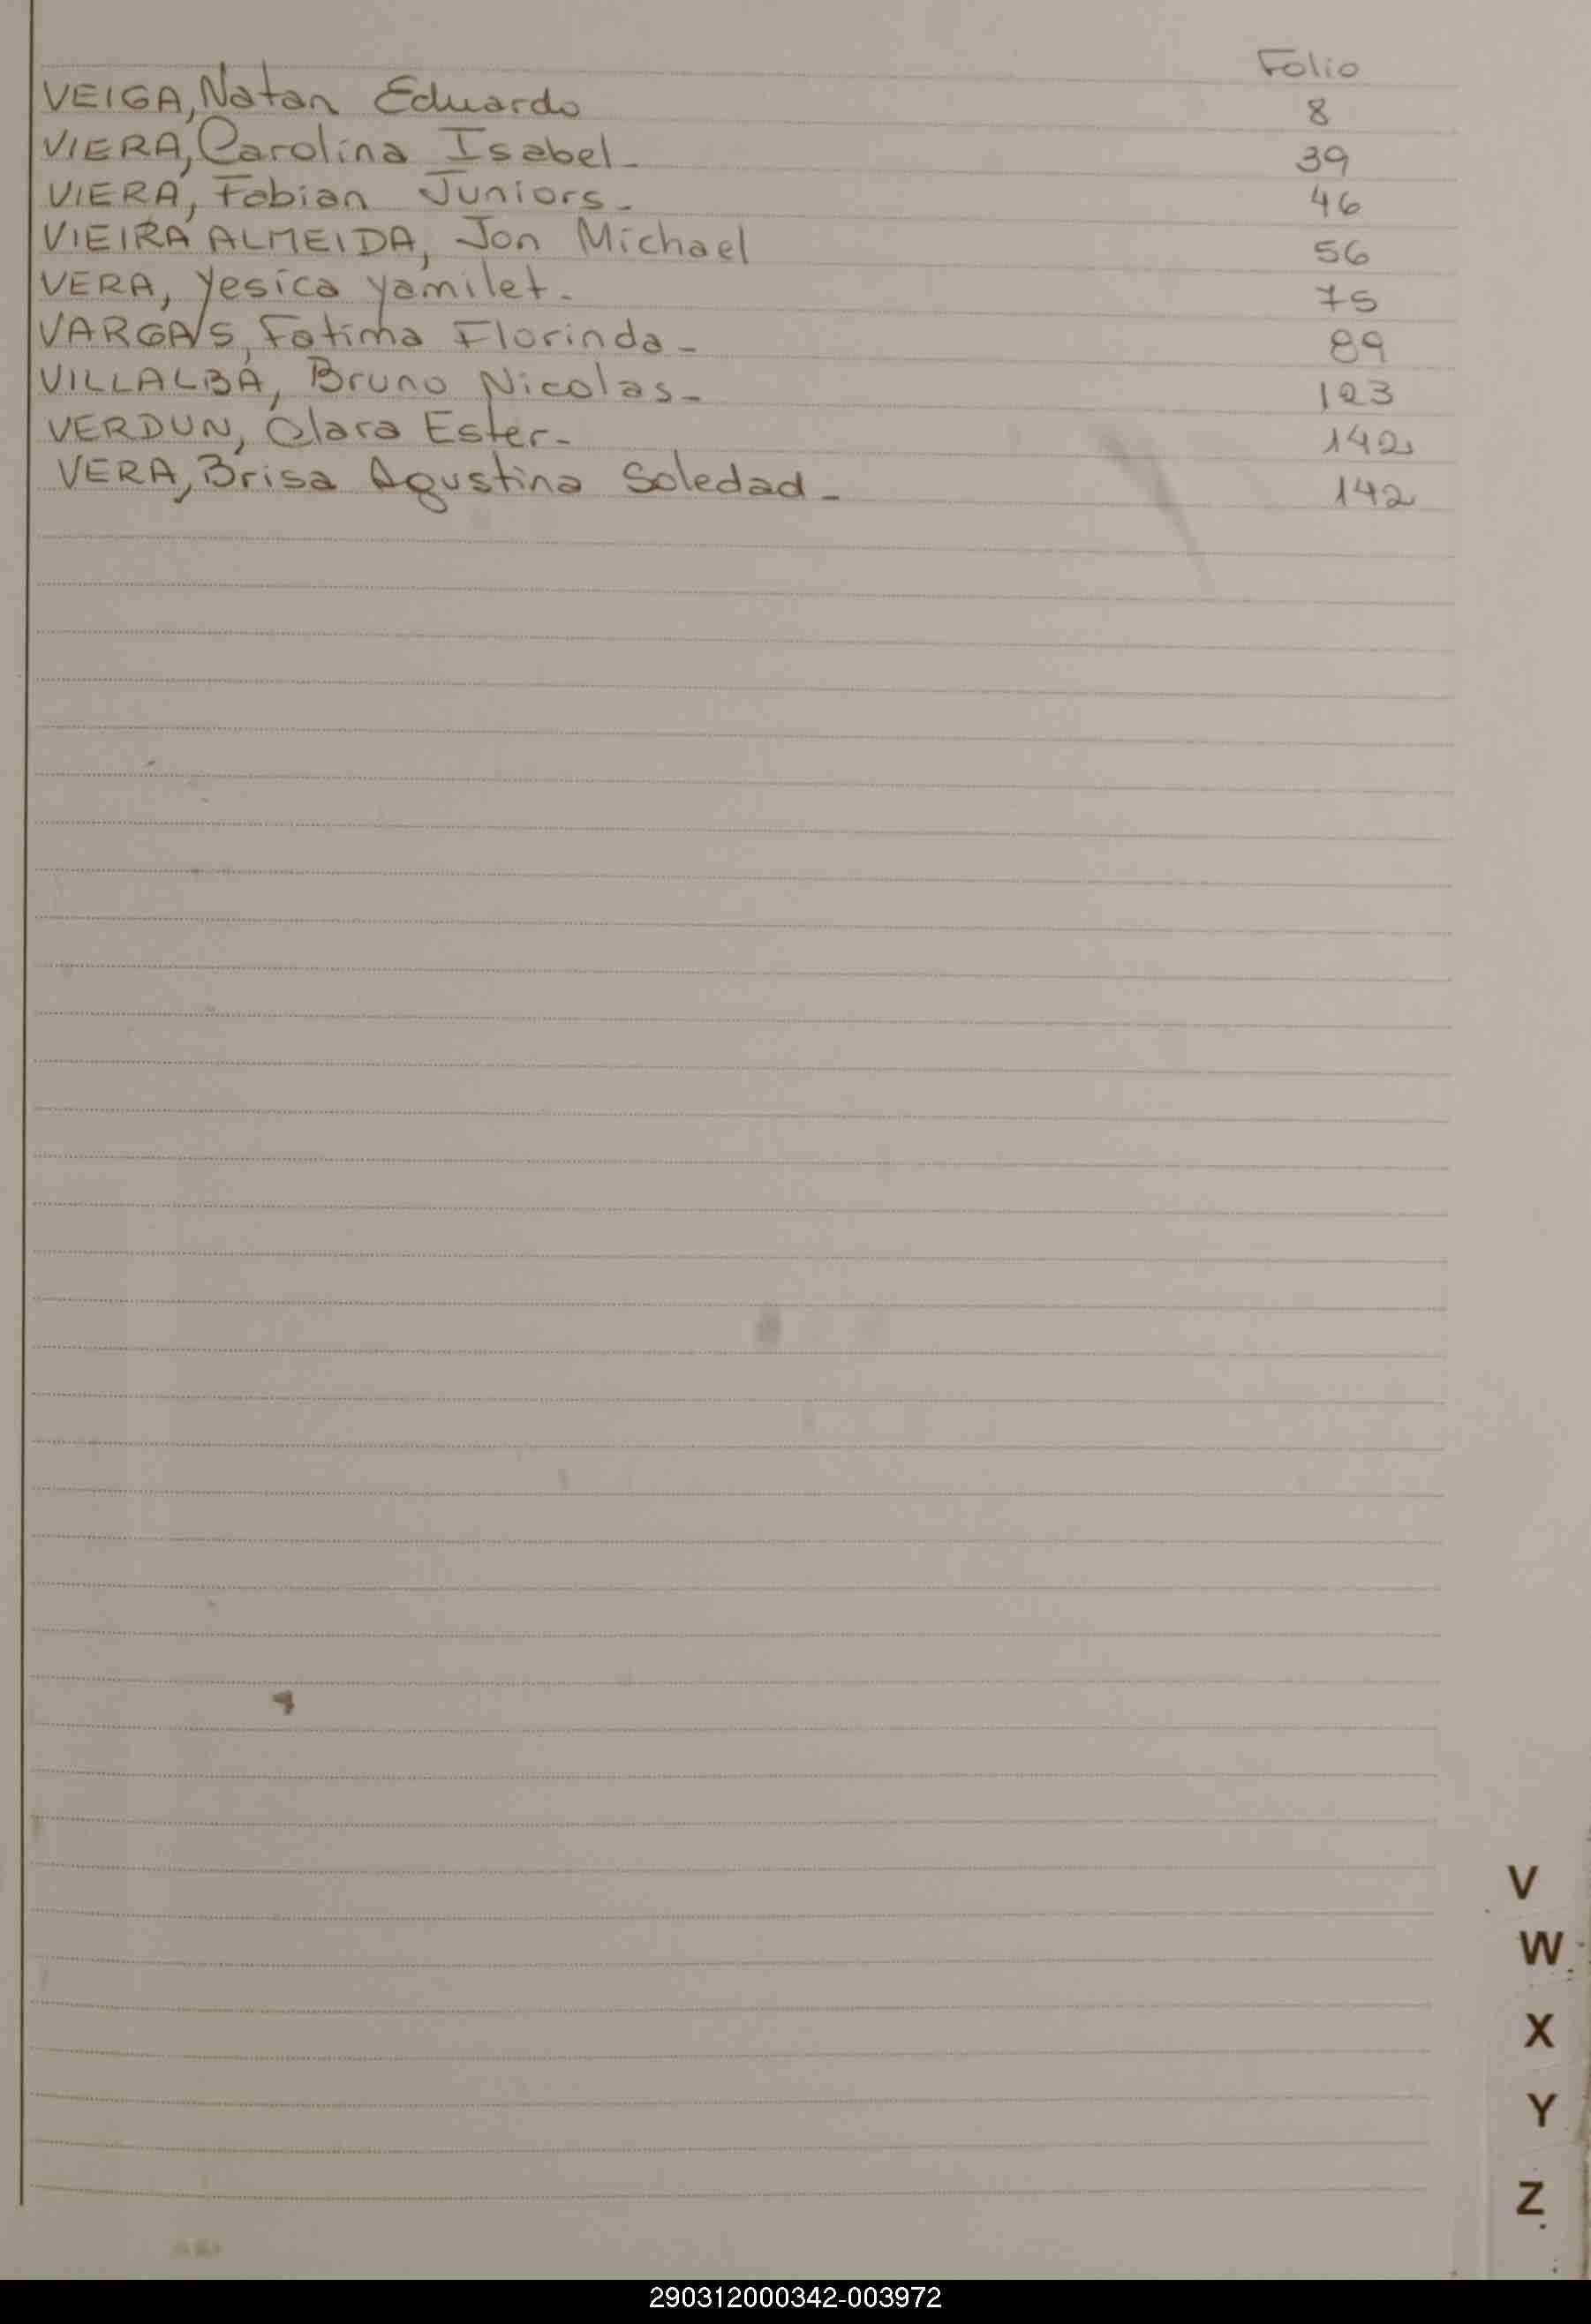 Folio
VEIGA, Natan Eduardo 8
VIERA, Carolina Isabel- 39
VIERA, Fabian Juniors- 46
VIEIRA ALMEIDA, Jon Michael 56
VERA, Yesica Yamilet- 75
VARGAS, Fatima Florinda- 89
VILLALBA, Bruno Nicolas- 123
VERDUN, Clara Ester- 142
VERA, Brisa Agustina Soledad- 142
V
W
X
Y
Z
290312000342-003972